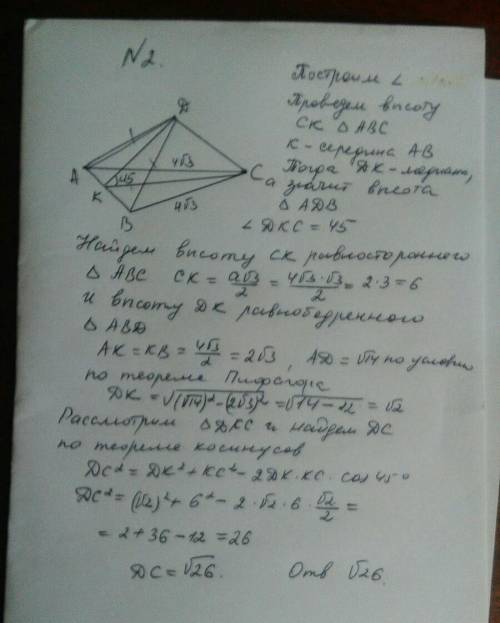 N2.
Построим ∠
Проведем высоту
CK △ ABC
K - середина AB
Тогда DK - медиана,
а значит высота
△ ADB
∠ DKC = 45
D
A
4√3
C
K
45
B
4√3
Найдем высоту CK равностороннего
△ ABC CK = a√3/2 = 4√3·√3/2 = 2·3 = 6
и высоту DK равнобедренного
△ ABD
AK = KB = 4√3/2 = 2√3, AD = √14 по условию
по теореме Пифагора
DK = √(√14)² - (2√3)² = √14 - 12 = √2
Рассмотрим △ DKC и найдем DC
по теореме косинусов
DC² = DK² + KC² - 2DK·KC·cos 45°
DC² = (√2)² + 6² - 2·√2·6·√2/2 =
= 2 + 36 - 12 = 26
DC = √26. Отв √26.